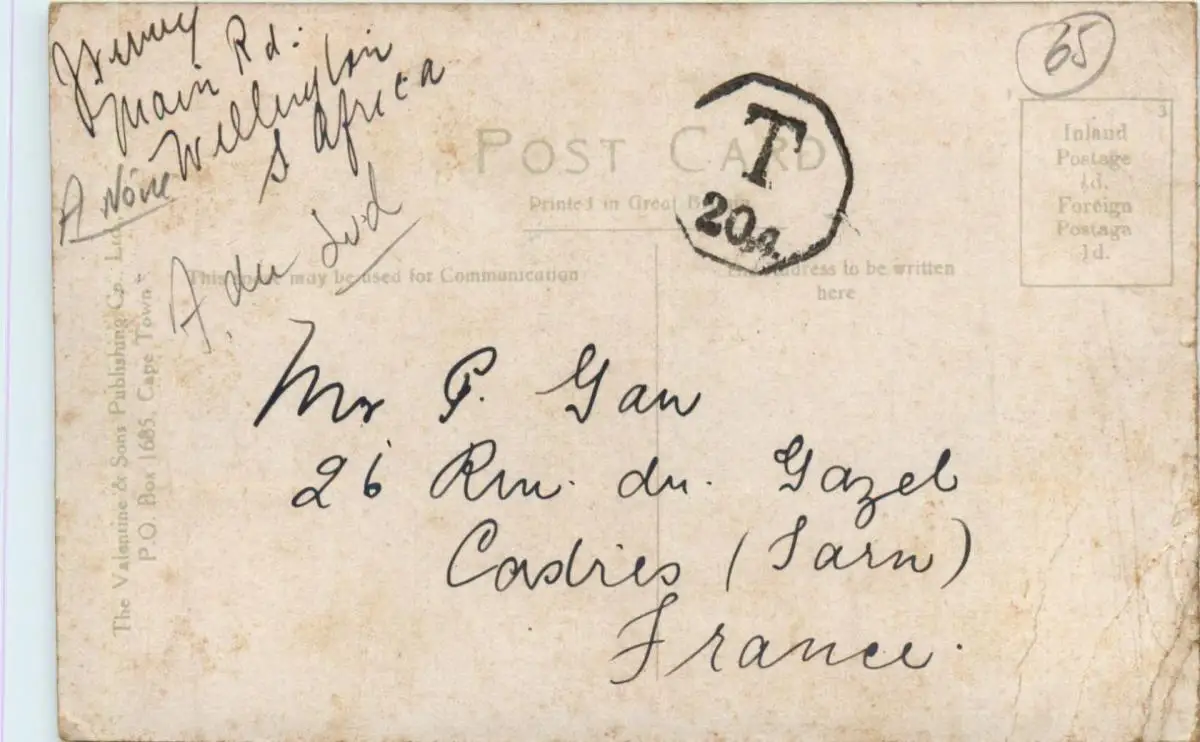 Main Rd:
Wellington
S Africa
A
A. du Sud
65
T
20
POST CARD
Printed in Great Britain
This space may be used for Communication
The address to be written
here
3
Inland
Postage
½d.
Foreign
Postage
1d.
The Valentine & Sons Publishing Co., Ltd
P.O. Box 1685, Cape Town
Mr P. Gau
26 Rue. du. Gazel
Castres (Tarn)
France.